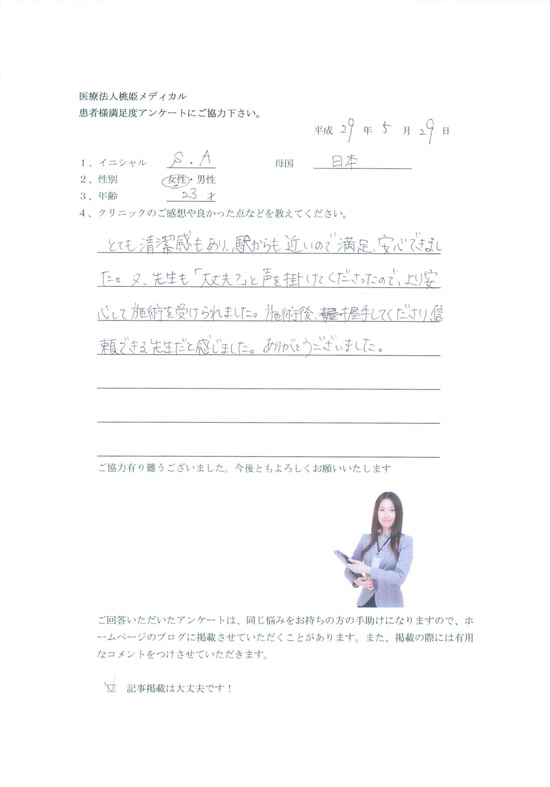 医療法人桃姫メディカル
患者様満足度アンケートにご協力下さい。
平成 29 年 5 月 29 日
1、イニシャル S．A 母国 日本
2、性別 女性・男性
3、年齢 23 才
4、クリニックのご感想や良かった点などを教えてください。
とても清潔感もあり、駅からも近いので満足、安心できまし
た。又、先生も「大丈夫？」と声を掛けてくださったので、より安
心して施術を受けられました。施術後、握手してくださり信
頼できる先生だと感じました。ありがとうございました。
ご協力有り難うございました。今後ともよろしくお願いいたします
ご回答いただいたアンケートは、同じ悩みをお持ちの方の手助けになりますので、ホ
ームページのブログに掲載させていただくことがあります。また、掲載の際には有用
なコメントをつけさせていただきます。
☑ 記事掲載は大丈夫です！